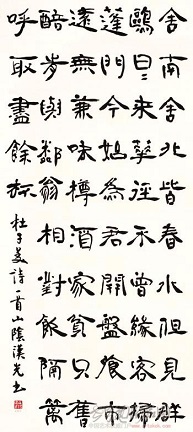 舍南舍北皆春水但見群
鷗日々來華徑不曾緣客掃
蓬門今始為君開盤飧市
遠無兼味樽酒家貧只舊
醅肯與鄰翁相對飲隔籬
呼取盡餘杯
杜子美詩一首山陰光书